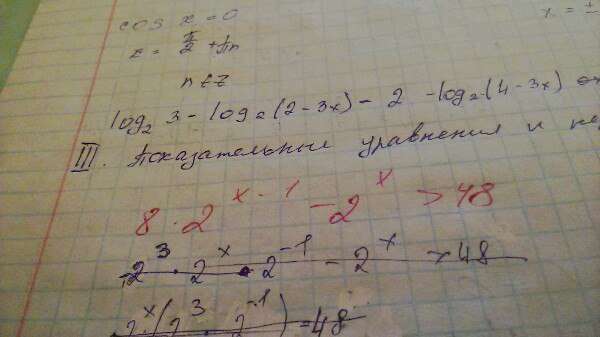 cos x = 0
x = ±
x = π/2 + πn
n ∈ Z
log₂ 3 - log₂ (2 - 3x) - 2 - log₂ (4 - 3x)
III. Показательные уравнения и не
8 · 2^(x - 1) - 2^x > 48
2³ · 2^x · 2^(-1) - 2^x > 48
2^x (2³ · 2^(-1)) = 48